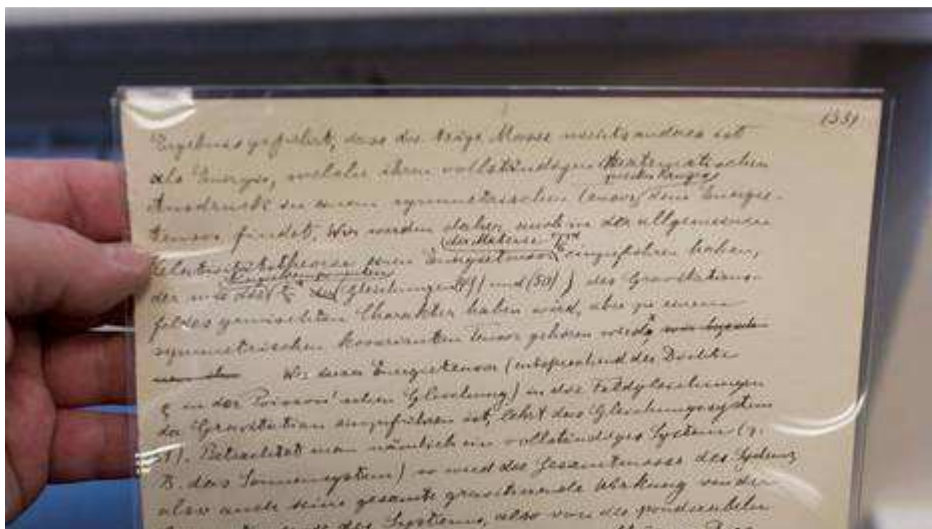 (33)
Ergebnis geführt, dass die träge Masse nichts anderes ist
als Energie, welche ihren vollständigen mathematischen
zweiten Ranges
Ausdruck in einem symmetrischen Tensor, dem Energie-
tensor findet. Wir werden daher auch in der allgemeinen
der Materie
Relativitätstheorie einen Energietensor einzuführen haben,
der wie die (Gleichungen (49) und (50)) des Gravitations-
feldes gemischten Charakter haben wird, aber zu einem
symmetrischen kovarianten Tensor gehören wird
Wie dieser Energietensor (entsprechend der Dichte
ς in der Poisson'schen Gleichung) in die Feldgleichungen
der Gravitation einzuführen ist, lehrt das Gleichungssystem
51). Betrachtet man nämlich ein vollständiges System (z.
B. das Sonnensystem) so wird die Gesamtmasse des Systems,
also auch seine gesamte gravitierende Wirkung von der
des Systems, also von der ponderabeln